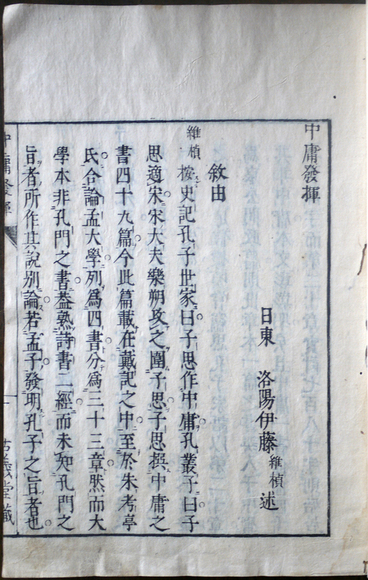 中庸發揮
日東 洛陽伊藤維楨述
敘由
維楨按史記孔子世家曰子思作中庸孔叢子曰子
思適宋宋大夫樂朔攻之圍子思子思撰中庸之
書四十九篇今此篇載在戴記之中至於朱考亭
氏合論孟大學列爲四書分爲三十三章然而大
學本非孔門之書蓋熟詩書二經而未知孔門之
旨者所作其說別論若孟子發明孔子之旨者也
中庸發揮
一
古義堂藏